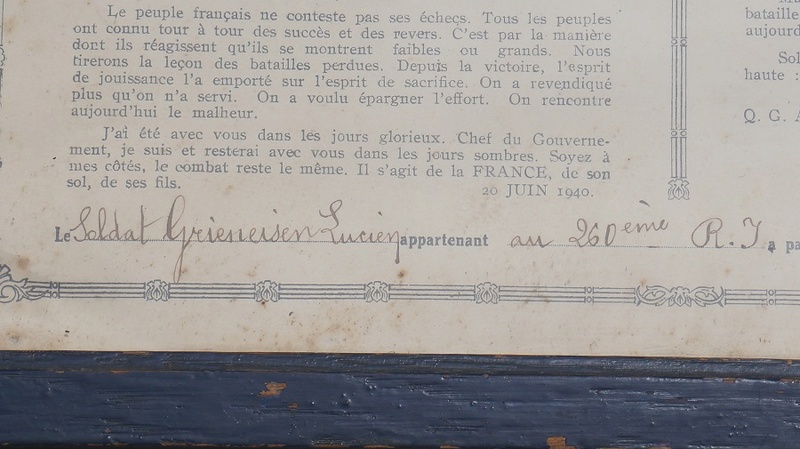 Le peuple français ne conteste pas ses échecs. Tous les peuples
ont connu tour à tour des succès et des revers. C'est par la manière
dont ils réagissent qu'ils se montrent faibles ou grands. Nous
tirerons la leçon des batailles perdues. Depuis la victoire, l'esprit
de jouissance l'a emporté sur l'esprit de sacrifice. On a revendiqué
plus qu'on n'a servi. On a voulu épargner l'effort. On rencontre
aujourd'hui le malheur.
J'ai été avec vous dans les jours glorieux. Chef du Gouverne-
ment, je suis et resterai avec vous dans les jours sombres. Soyez à
mes côtés, le combat reste le même. Il s'agit de la FRANCE, de son
sol, de ses fils.
20 JUIN 1940.
Le Soldat Grieneisen Lucien appartenant au 260ème R. I. a pa
bataille
aujourd
Sol
haute :
Q. G. A